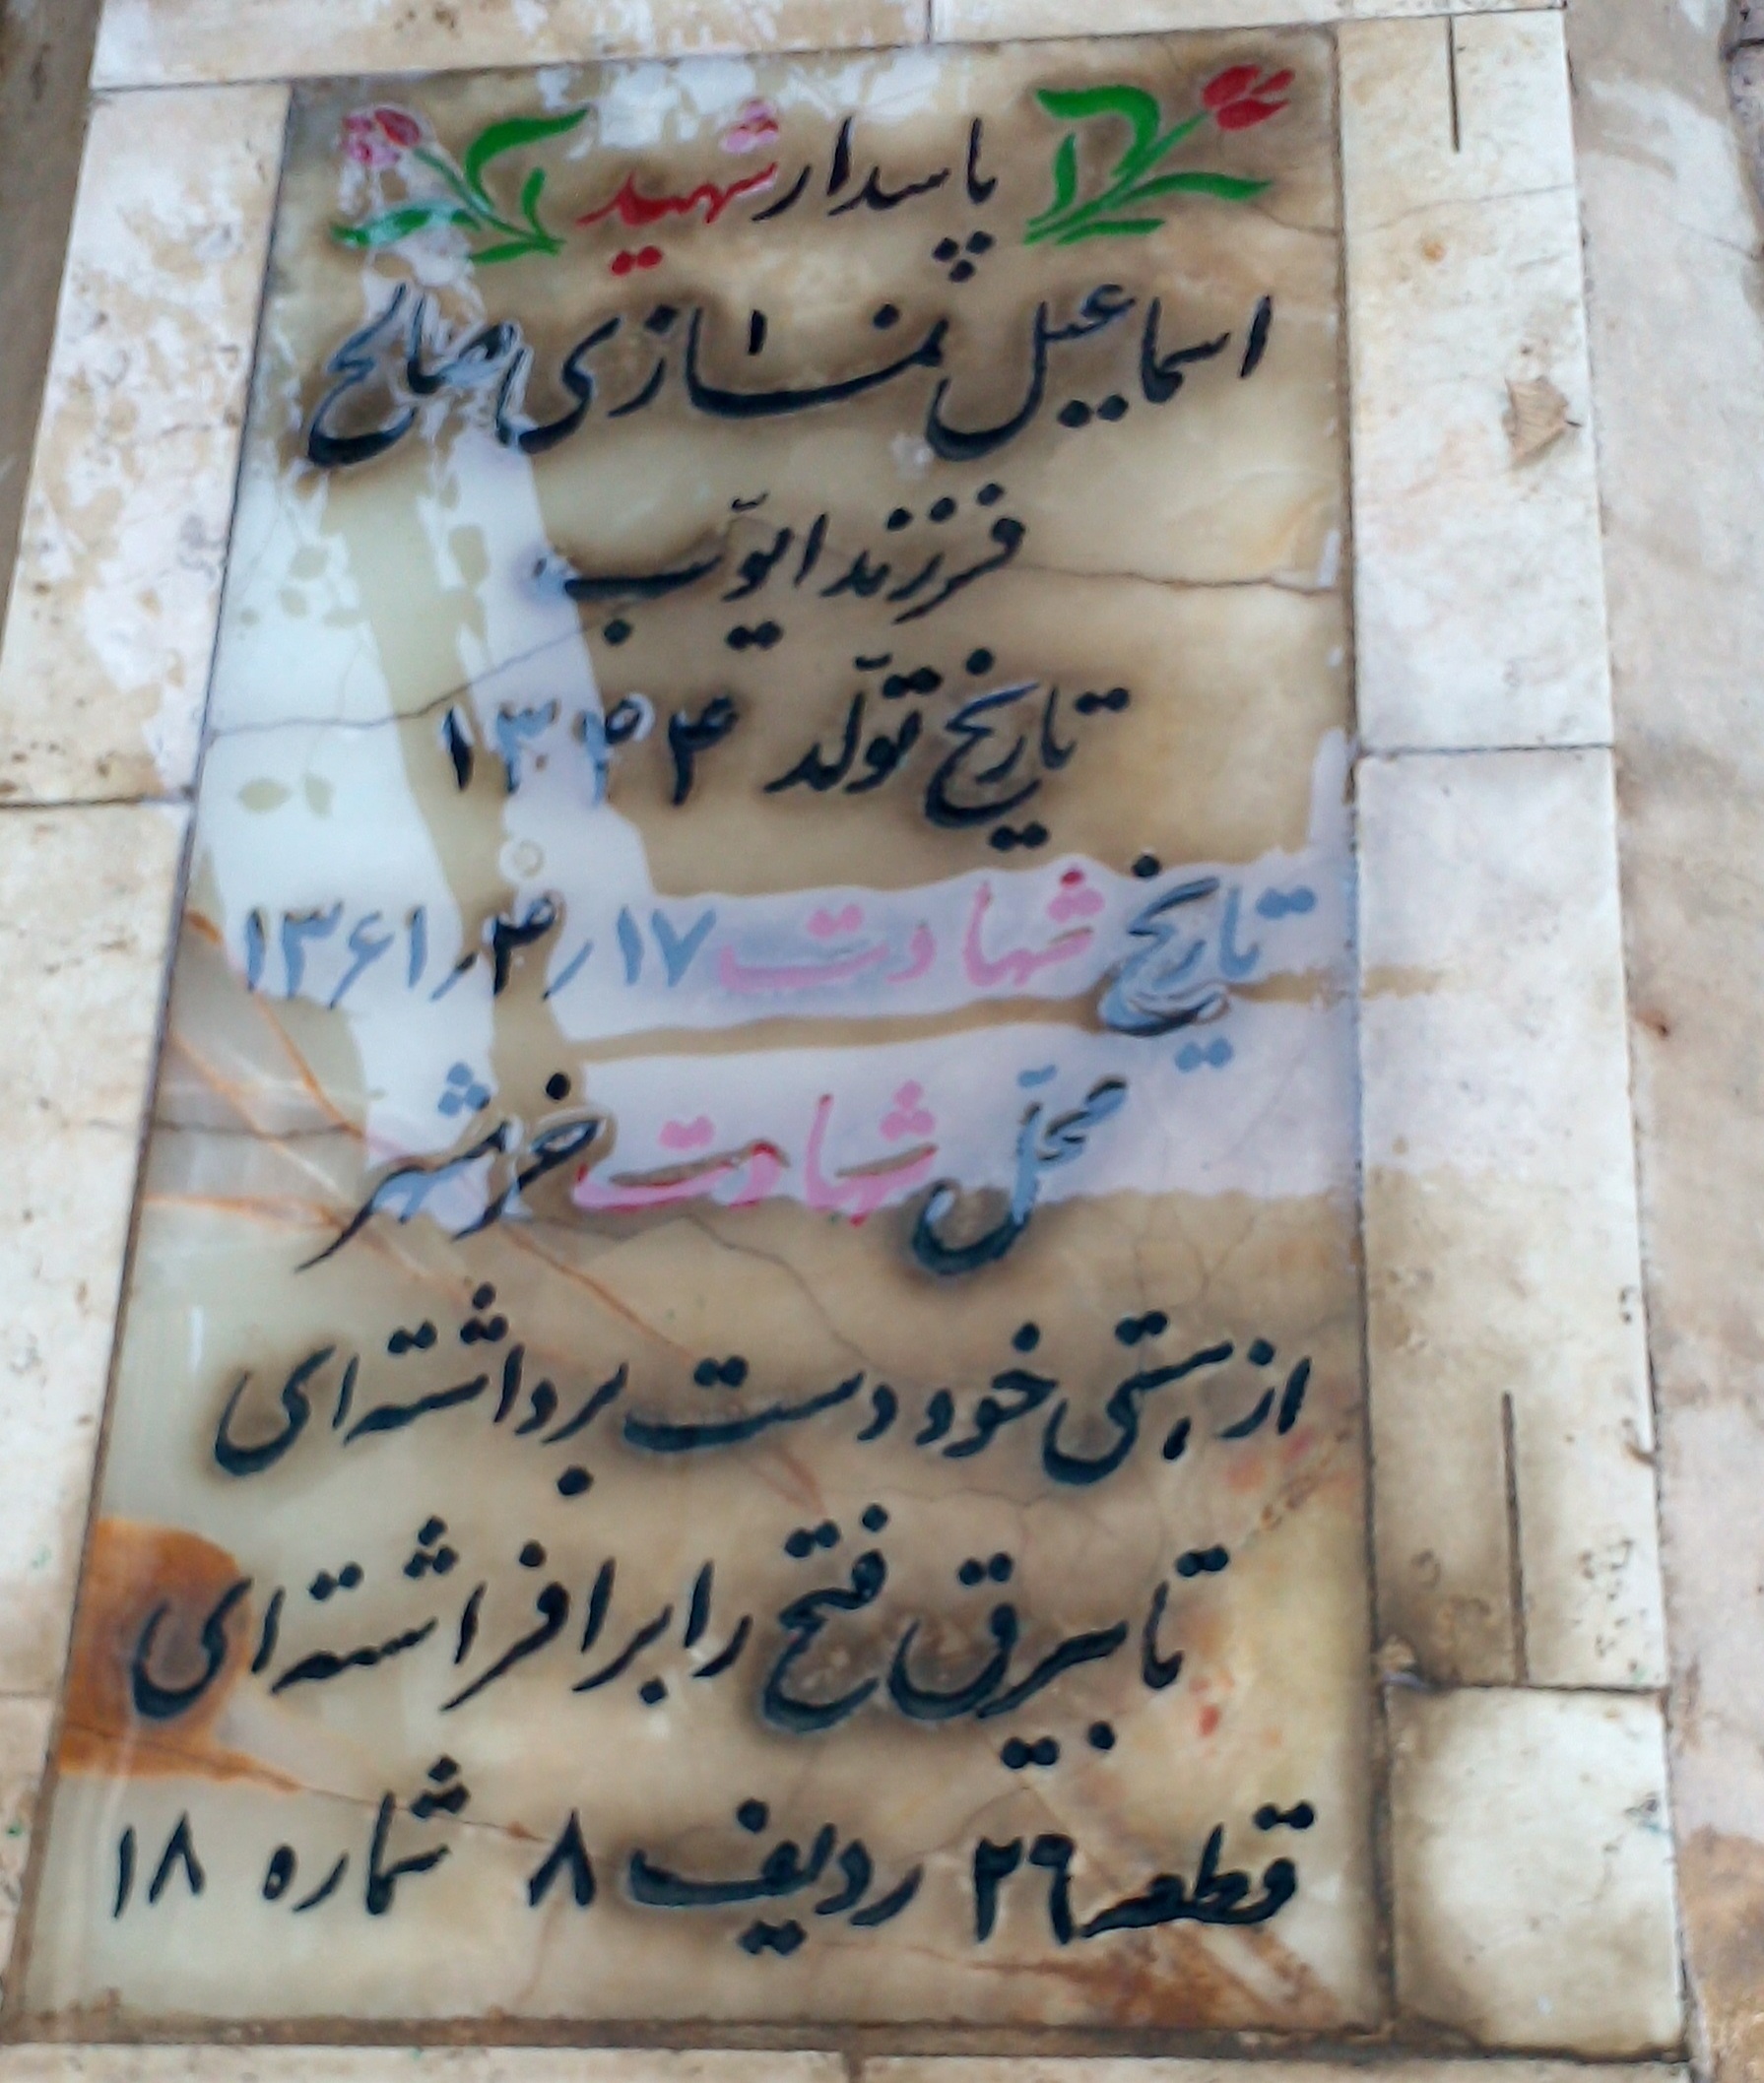 پاسدار شهید
اسماعیل نمازی صالح
فرزند ایوّب
تاریخ تولّد ۱۳۴۴
تاریخ شهادت ۱۷٫۴٫۱۳۶۱
محلّ شهادت خرمشهر
از هستی خود دست برداشته‌ای
تا بیرق فتح را برافراشته‌ای
قطعه ۲۶ ردیف ۸ شماره ۱۸